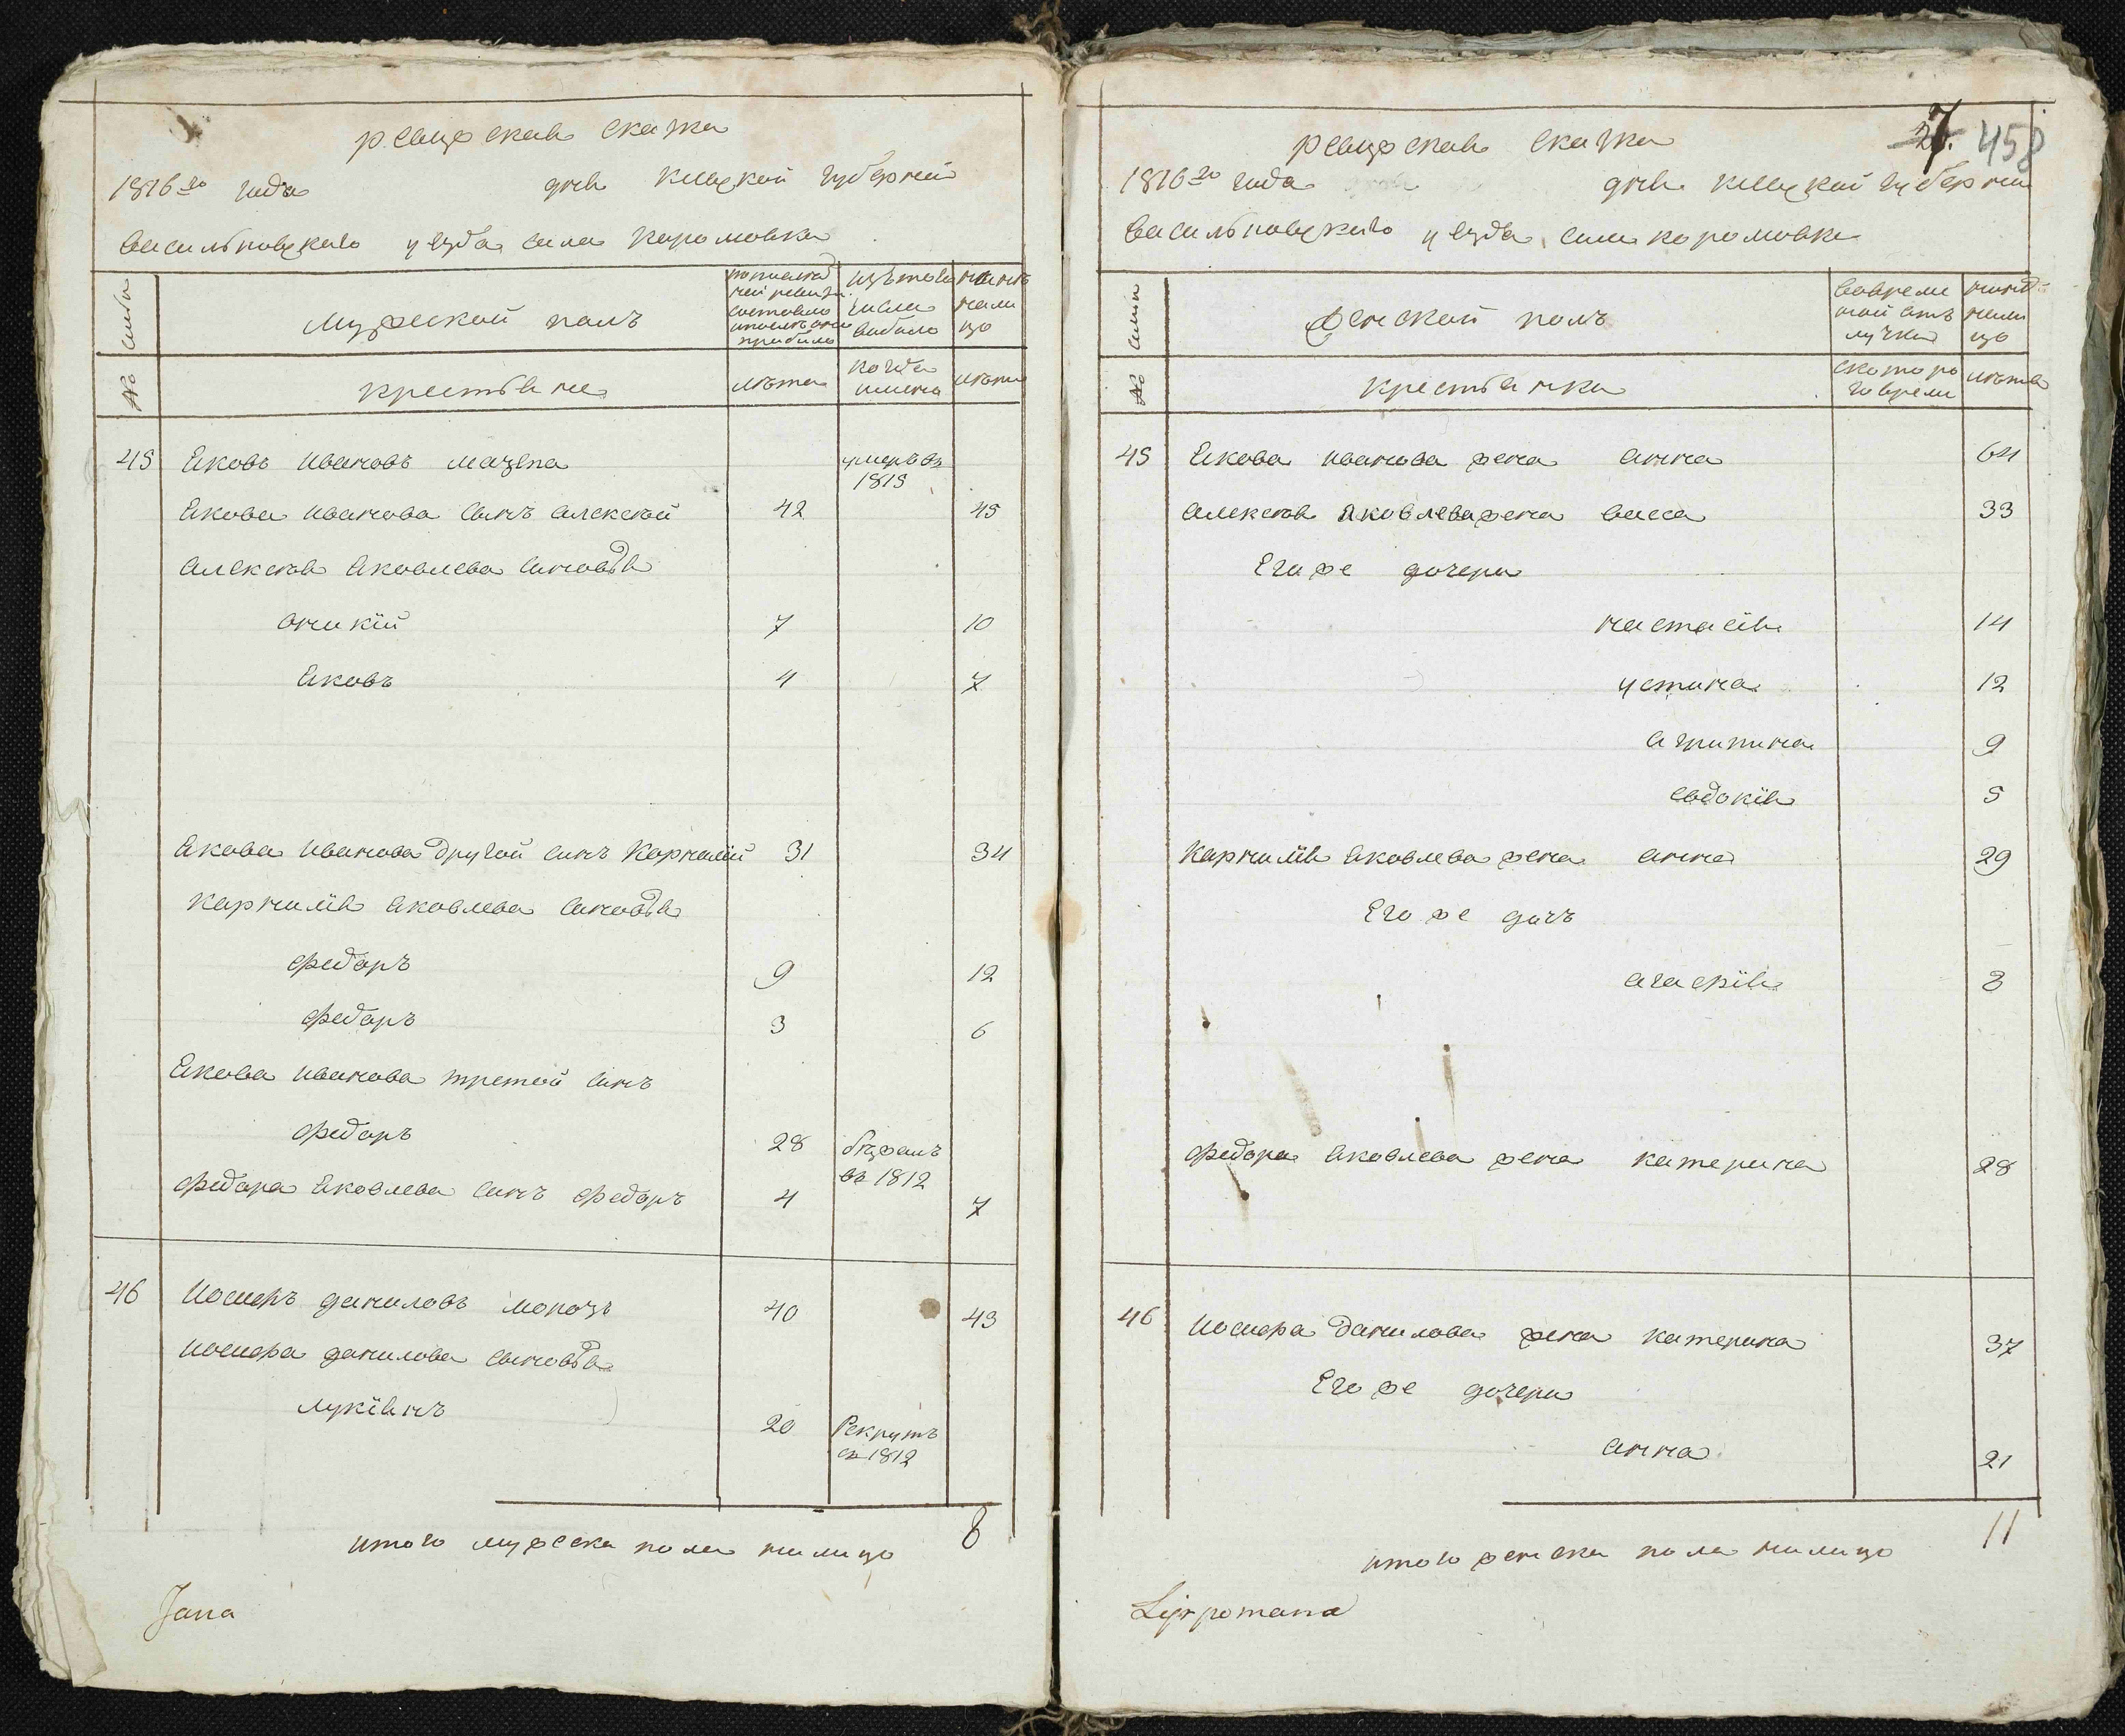 ревизская сказка
1816го года дня Киевской губернии
васильковского уезда села Королювка
№ семьи
мужеской полъ
по последней ревизи состояло и после оной прибыло
изътого числа выбыло
нынѣ налицо
крестьяне
лѣта
когда имено
лѣта
45 Яковъ ивановъ мазепа умеръ въ 1815
Якова иванова синъ алексѣй 42 45
алексѣя яковлева синовья
оникій 7 10
Яковъ 4 7
Якова иванова другой синъ Корнилій 31 34
корнилія яковлева синовья
федоръ 9 12
федоръ 3 6
Якова иванова третой синъ
федоръ 28 бѣжалъ въ 1812
федора Яковлева синъ федоръ 4 7
46 иосифъ даниловъ морозъ 40 43
иосифа данилова синовья
лукіянъ 20 Рекрутъ въ 1812
итого мужеска пола налицо 8
Jana
7 458
ревизская сказка
1816го года дня Киевской губернии
васильковского уезда села королювки
№ семьи
Женской полъ
вовременой отлучки
нинѣ налицо
крестьянка
скоторого времени
лѣта
45 Якова иванова жена анна 64
алексѣя яковлева жена васса 33
Его же дочери
настасія 14
устина 12
агрипина 9
евдокія 5
Корнилія яковлева жена анна 29
Его же дочъ
агафія 8
федора Яковлева жена катерина 28
46 иосифа данилова жена катерина 37
Его же дочери
анна 21
итого женска пола налицо 11
Lippomana